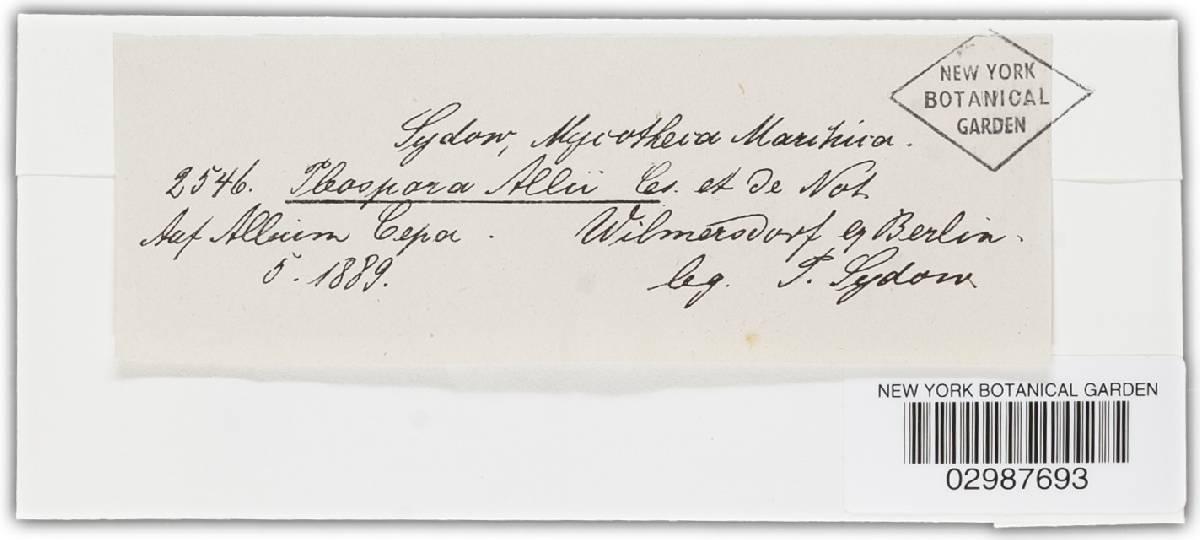 NEW YORK
BOTANICAL
GARDEN
Sydow, Mycotheca Marchica.
2546. Pleospora Allii Ces. et de Not.
Auf Allium Cepa. Wilmersdorf b/ Berlin.
5. 1889. leg. P. Sydow.
NEW YORK BOTANICAL GARDEN
02987693